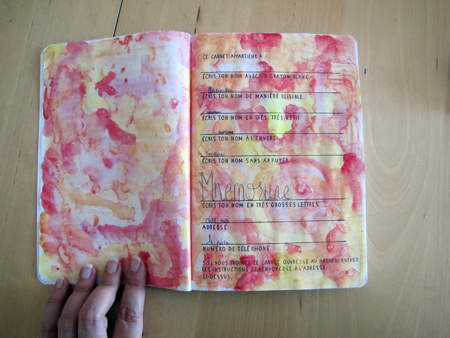 CE CARNET APPARTIENT À :
ÉCRIS TON NOM AVEC UN CRAYON BLANC.
ÉCRIS TON NOM DE MANIÈRE ILLISIBLE.
ÉCRIS TON NOM EN TRÈS, TRÈS PETIT.
ÉCRIS TON NOM À L'ENVERS.
ÉCRIS TON NOM SANS APPUYER.
Mnemosine
ÉCRIS TON NOM EN TRÈS GROSSES LETTRES.
ADRESSE
NUMÉRO DE TÉLÉPHONE
*SI VOUS TROUVEZ CE CARNET, OUVREZ-LE AU HASARD, SUIVEZ
LES INSTRUCTIONS ET RENVOYEZ-LE À L'ADRESSE
CI-DESSUS.